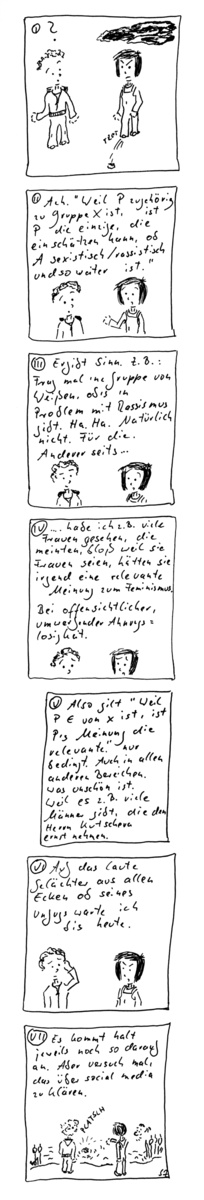 I ?
TRET
II Ach. "Weil P zugehörig
zu Gruppe X ist, ist
P die einzige, die
einschätzen kann, ob
A sexistisch/rassistisch
und so weiter ist."
III Ergibt Sinn. Z.B.:
Frag mal ine Gruppe von
Weißen, ob's in
Problem mit Rassismus
gibt. Ha. Ha. Natürlich
nicht. Für die.
Anderer seits...
IV ... habe ich z.B. viele
Frauen gesehen, die
meinten, bloß weil sie
Frauen seien, hätten sie
irgend eine relevante
Meinung zum Feminismus.
Bei offensichtlicher,
umwerfender Ahnungs=
losigkeit.
V Also gilt "Weil
P ∈ von X ist, ist
P's Meinung die
relevante." nur
bedingt. Auch in allen
anderen Bereichen.
Was unschön ist.
Weil es z.B. viele
Männer gibt, die den
Herrn Kutschera
ernst nehmen.
VI Auf das laute
Gelächter aus allen
Ecken ob seines
Unfugs warte ich
bis heute.
VII Es kommt halt
jeweils noch so darauf
an. Aber versuch mal,
das über social media
zu klären.
PLATSCH